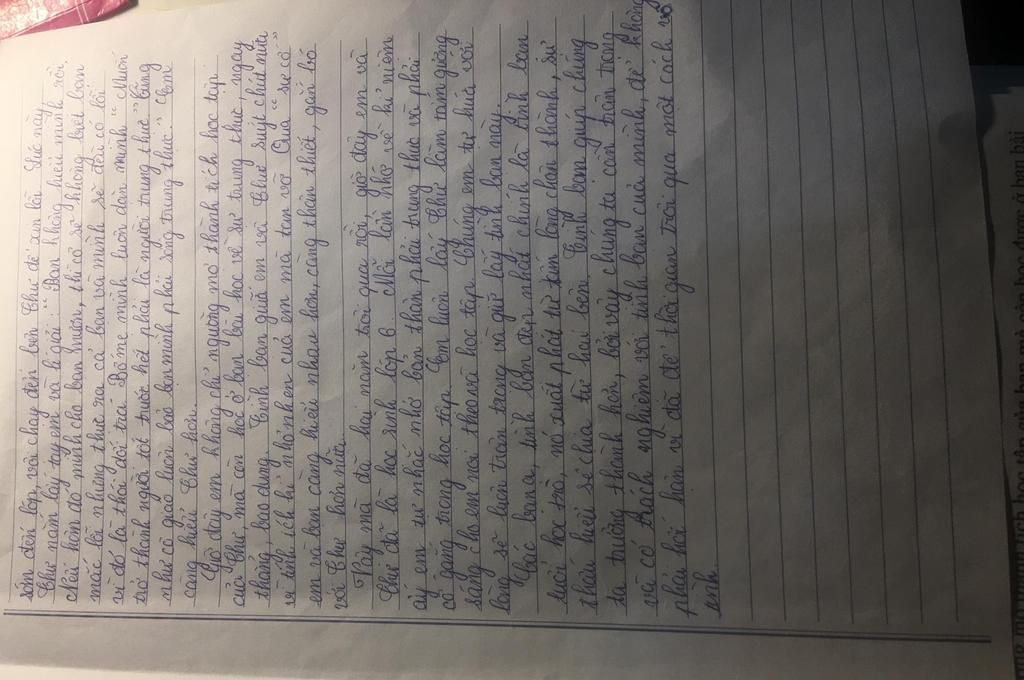 sớm đến lớp, và chạy đến bên Thư để xin lỗi. Lúc này,
Thư nắm lấy tay em và hỏi: " Bạn không hiểu mình rồi.
Nếu hôm đó mình cho bạn mượn, thì cô sẽ không biết bạn
mắc lỗi nhưng thực ra cả bạn và mình sẽ đều có lỗi
vì đó là thói dối trá. Bố mẹ mình luôn dặn mình " Muốn
trở thành người tốt trước hết phải là người trung thực" Cũng
như cô giáo luôn bảo bọn mình phải sống trung thực." Em
càng hiểu Thư hơn.
Giờ đây em không chỉ ngưỡng mộ thành tích học tập
của Thư, mà còn học ở bạn bài học về sự trung thực, ngay
thẳng, bao dung. Tình bạn giữa em và Thư suýt chút nữa
vì tính ích kỉ nhỏ nhen của em mà tan vỡ. Qua " sự cố"
em và bạn càng hiểu nhau hơn, càng thân thiết, gắn bó
với Thư hơn nữa.
Vậy mà đã hai năm trôi qua rồi, giờ đây em và
Thư đã là học sinh lớp 6. Mỗi lần nhớ về kỉ niệm
ấy em tự nhắc nhở bản thân phải trung thực và phải
cố gắng trong học tập. Em luôn lấy Thư làm tấm gương
sáng cho em noi theo và học tập. Chúng em tự hứa với
lòng sẽ luôn trân trọng và giữ lấy tình bạn này.
Các bạn ạ, tình bạn đẹp nhất chính là tình bạn
tuổi học trò, nó xuất phát từ tấm lòng chân thành, sự
thấu hiểu sẻ chia từ hai bên. Tình bạn giúp chúng
ta trưởng thành hơn, bởi vậy chúng ta cần trân trọng
và có trách nghiệm với tình bạn của mình, để không
phải hối hận vì đã để thời gian trôi qua một cách vô
ích.
học tập của bạn mà còn học được ở bạn bài